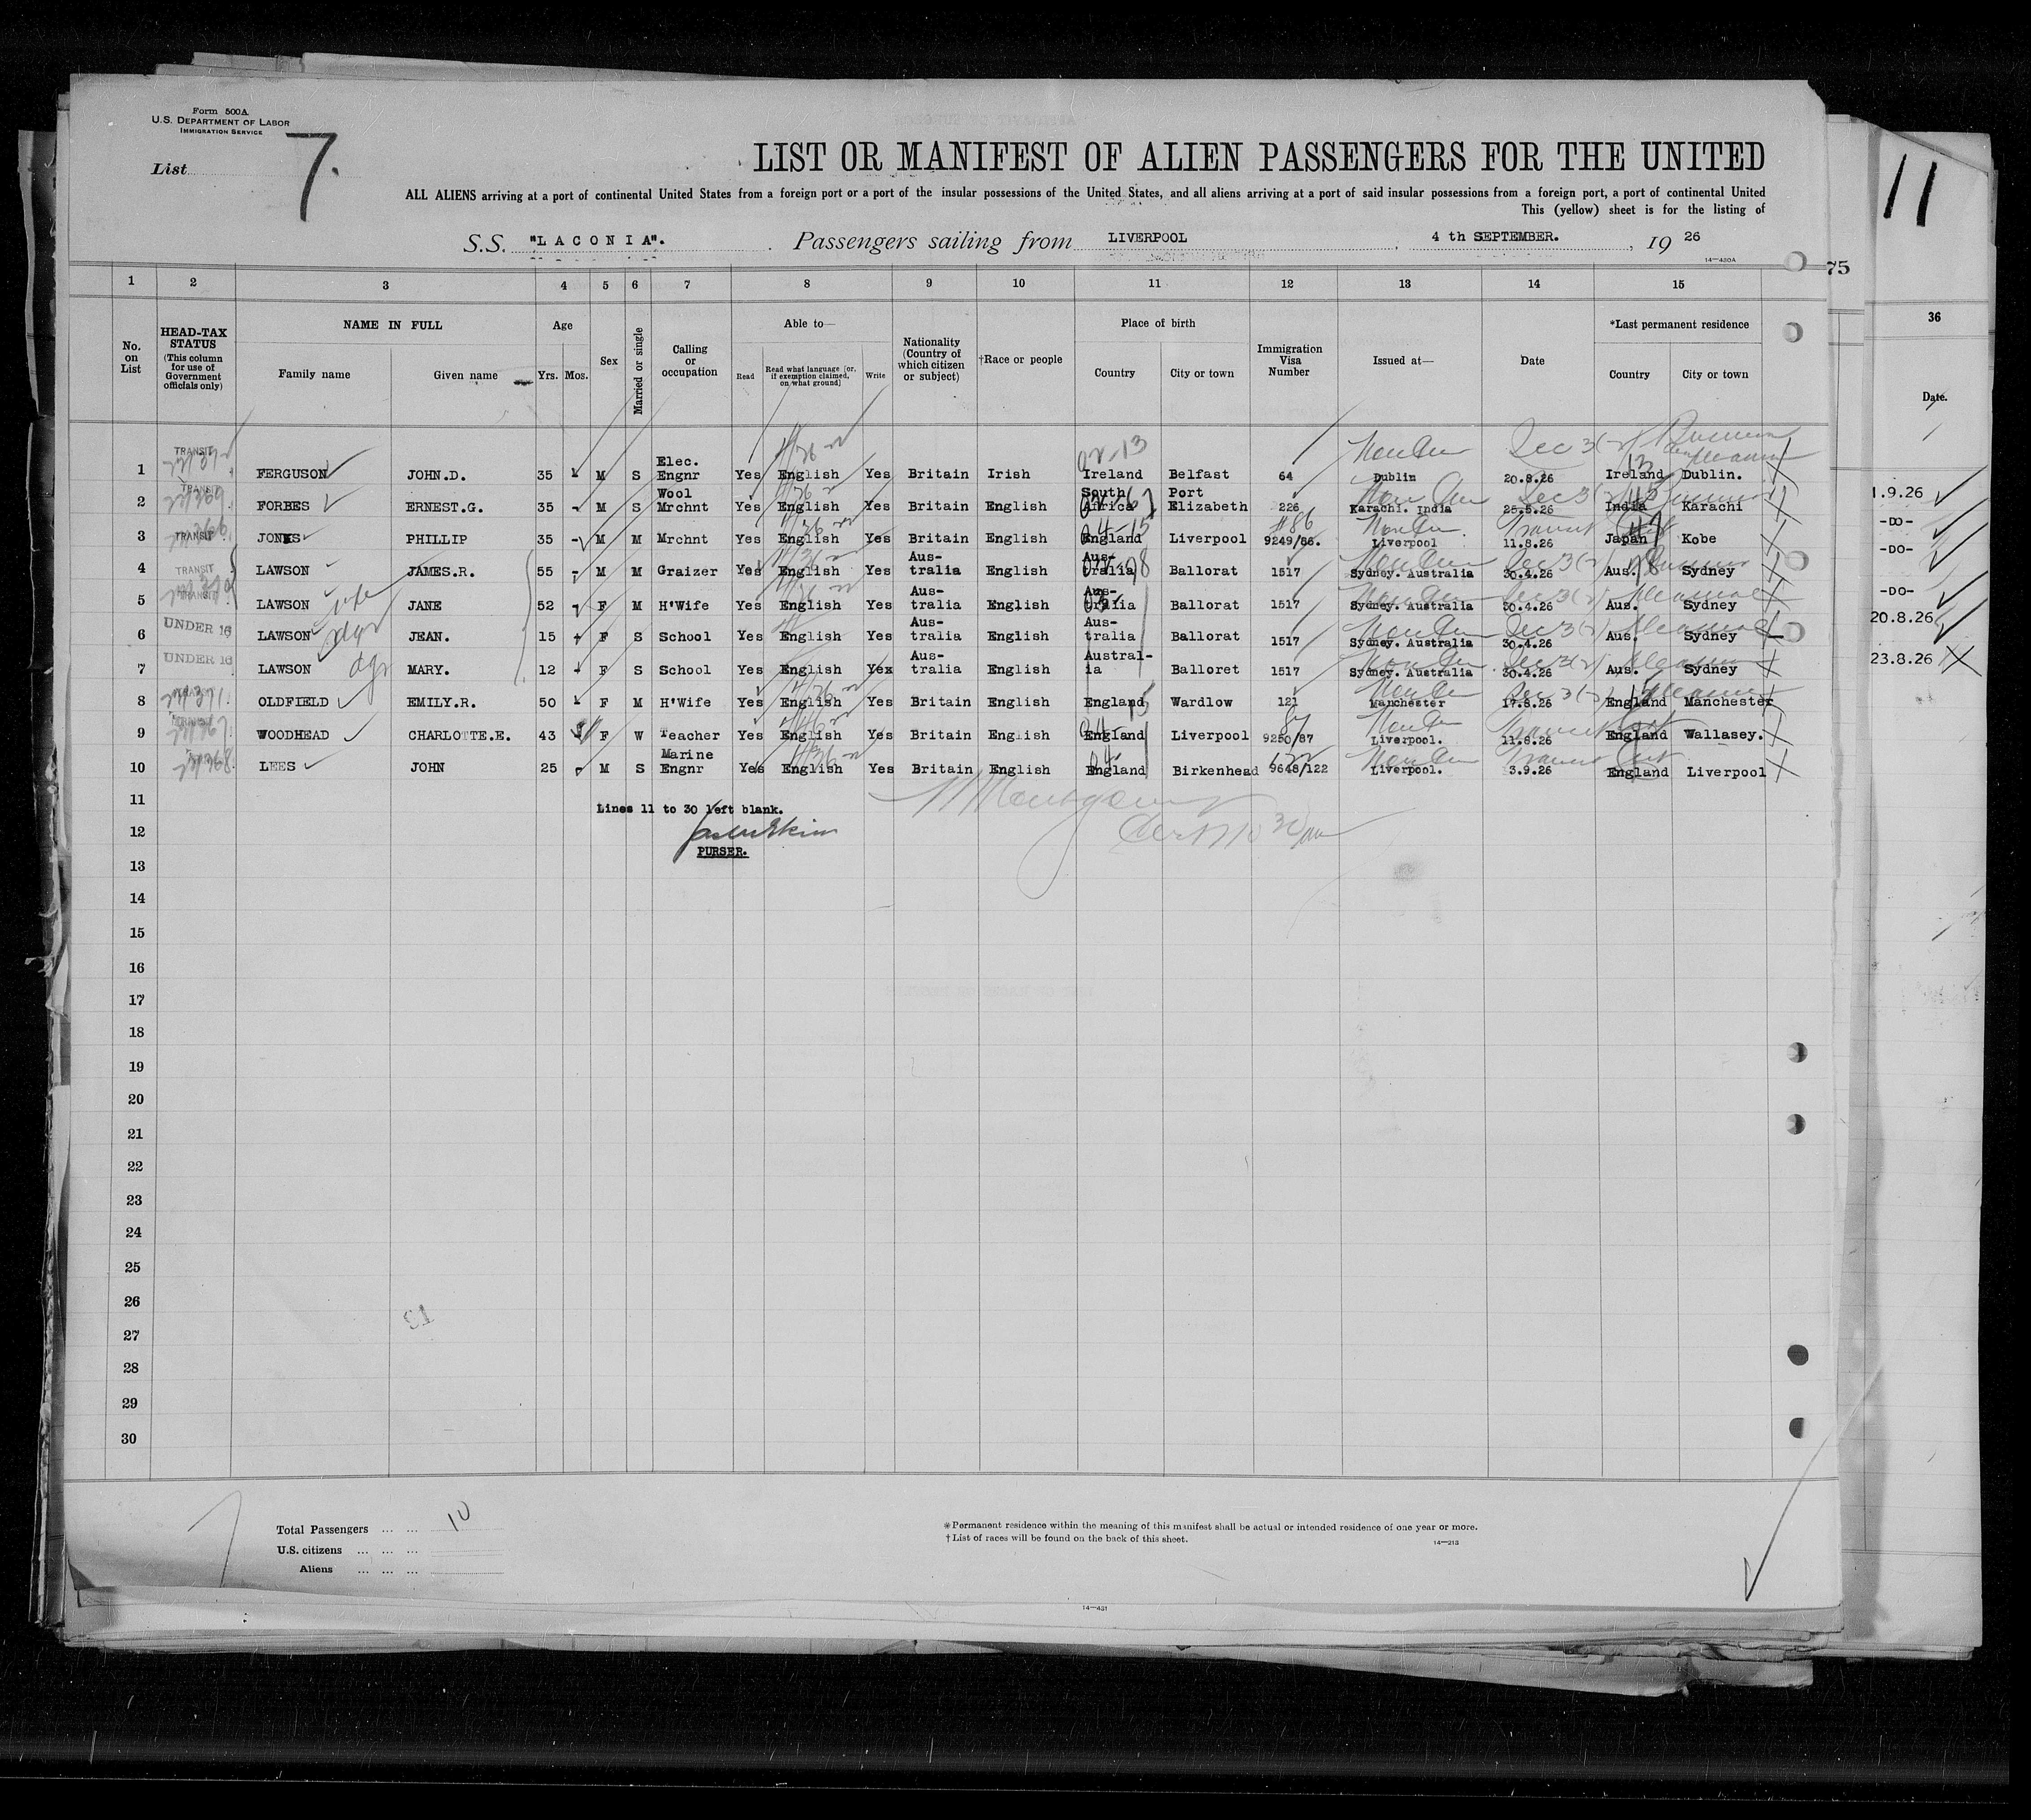 Form 500A
U.S. DEPARTMENT OF LABOR
IMMIGRATION SERVICE
List 7.
11
LIST OR MANIFEST OF ALIEN PASSENGERS FOR THE UNITED
ALL ALIENS arriving at a port of continental United States from a foreign port or a port of the insular possessions of the United States, and all aliens arriving at a port of said insular possessions from a foreign port, a port of continental United
This (yellow) sheet is for the listing of
S.S. "LACONIA". Passengers sailing from LIVERPOOL, 4 th SEPTEMBER., 19 26
14—430A
75
1 2 3 4 5 6 7 8 9 10 11 12 13 14 15
36
No. on List
HEAD-TAX STATUS (This column for use of Government officials only)
NAME IN FULL
Family name Given name
Age
Yrs. Mos.
Sex
Married or single
Calling or occupation
Able to—
Read Read what language [or, if exemption claimed, on what ground] Write
Nationality (Country of which citizen or subject)
†Race or people
Place of birth
Country City or town
Immigration Visa Number
Issued at—
Date
*Last permanent residence
Country City or town
Date.
1 TRANSIT FERGUSON JOHN.D. 35 M S Elec. Engnr Yes English Yes Britain Irish Ireland Belfast 64 Dublin 20.8.26 Ireland Dublin.
2 TRANSIT FORBES ERNEST.G. 35 - M S Wool Mrchnt Yes English Yes Britain English South Africa Port Elizabeth 226 Karachi. India 25.5.26 India Karachi
3 TRANSIT JONES PHILLIP 35 - M M Mrchnt Yes English Yes Britain English England Liverpool 9249/86. Liverpool 11.8.26 Japan Kobe
4 TRANSIT LAWSON JAMES.R. 55 - M M Graizer Yes English Yes Aus- tralia English Aus- tralia Ballorat 1517 Sydney. Australia 30.4.26 Aus. Sydney
5 TRANSIT LAWSON wife JANE 52 - F M H'Wife Yes English Yes Aus- tralia English Aus- tralia Ballorat 1517 Sydney. Australia 30.4.26 Aus. Sydney
6 UNDER 16 LAWSON dgr JEAN. 15 F S School Yes English Yes Aus- tralia English Aus- tralia Ballorat 1517 Sydney. Australia 30.4.26 Aus. Sydney
7 UNDER 16 LAWSON dgr MARY. 12 F S School Yes English Yex Aus- tralia English Austral- ia Balloret 1517 Sydney. Australia 30.4.26 Aus. Sydney
8 OLDFIELD EMILY.R. 50 F M H'Wife Yes English Yes Britain English England Wardlow 121 Manchester 17.8.26 England Manchester
9 WOODHEAD CHARLOTTE.E. 43 F W Teacher Yes English Yes Britain English England Liverpool 9250/87 Liverpool. 11.8.26 England Wallasey.
10 LEES JOHN 25 M S Marine Engnr Yes English Yes Britain English England Birkenhead 9648/122 Liverpool. 3.9.26 England Liverpool
1.9.26
-DO-
-DO-
-DO-
20.8.26
23.8.26
11
Lines 11 to 30 left blank.
12
PURSER.
13
14
15
16
17
18
19
20
21
22
23
24
25
26
27
28
29
30
13
Total Passengers ... ... 10
U.S. citizens ... ... ...
Aliens ... ... ...
*Permanent residence within the meaning of this manifest shall be actual or intended residence of one year or more.
†List of races will be found on the back of this sheet.
14—213
14—431